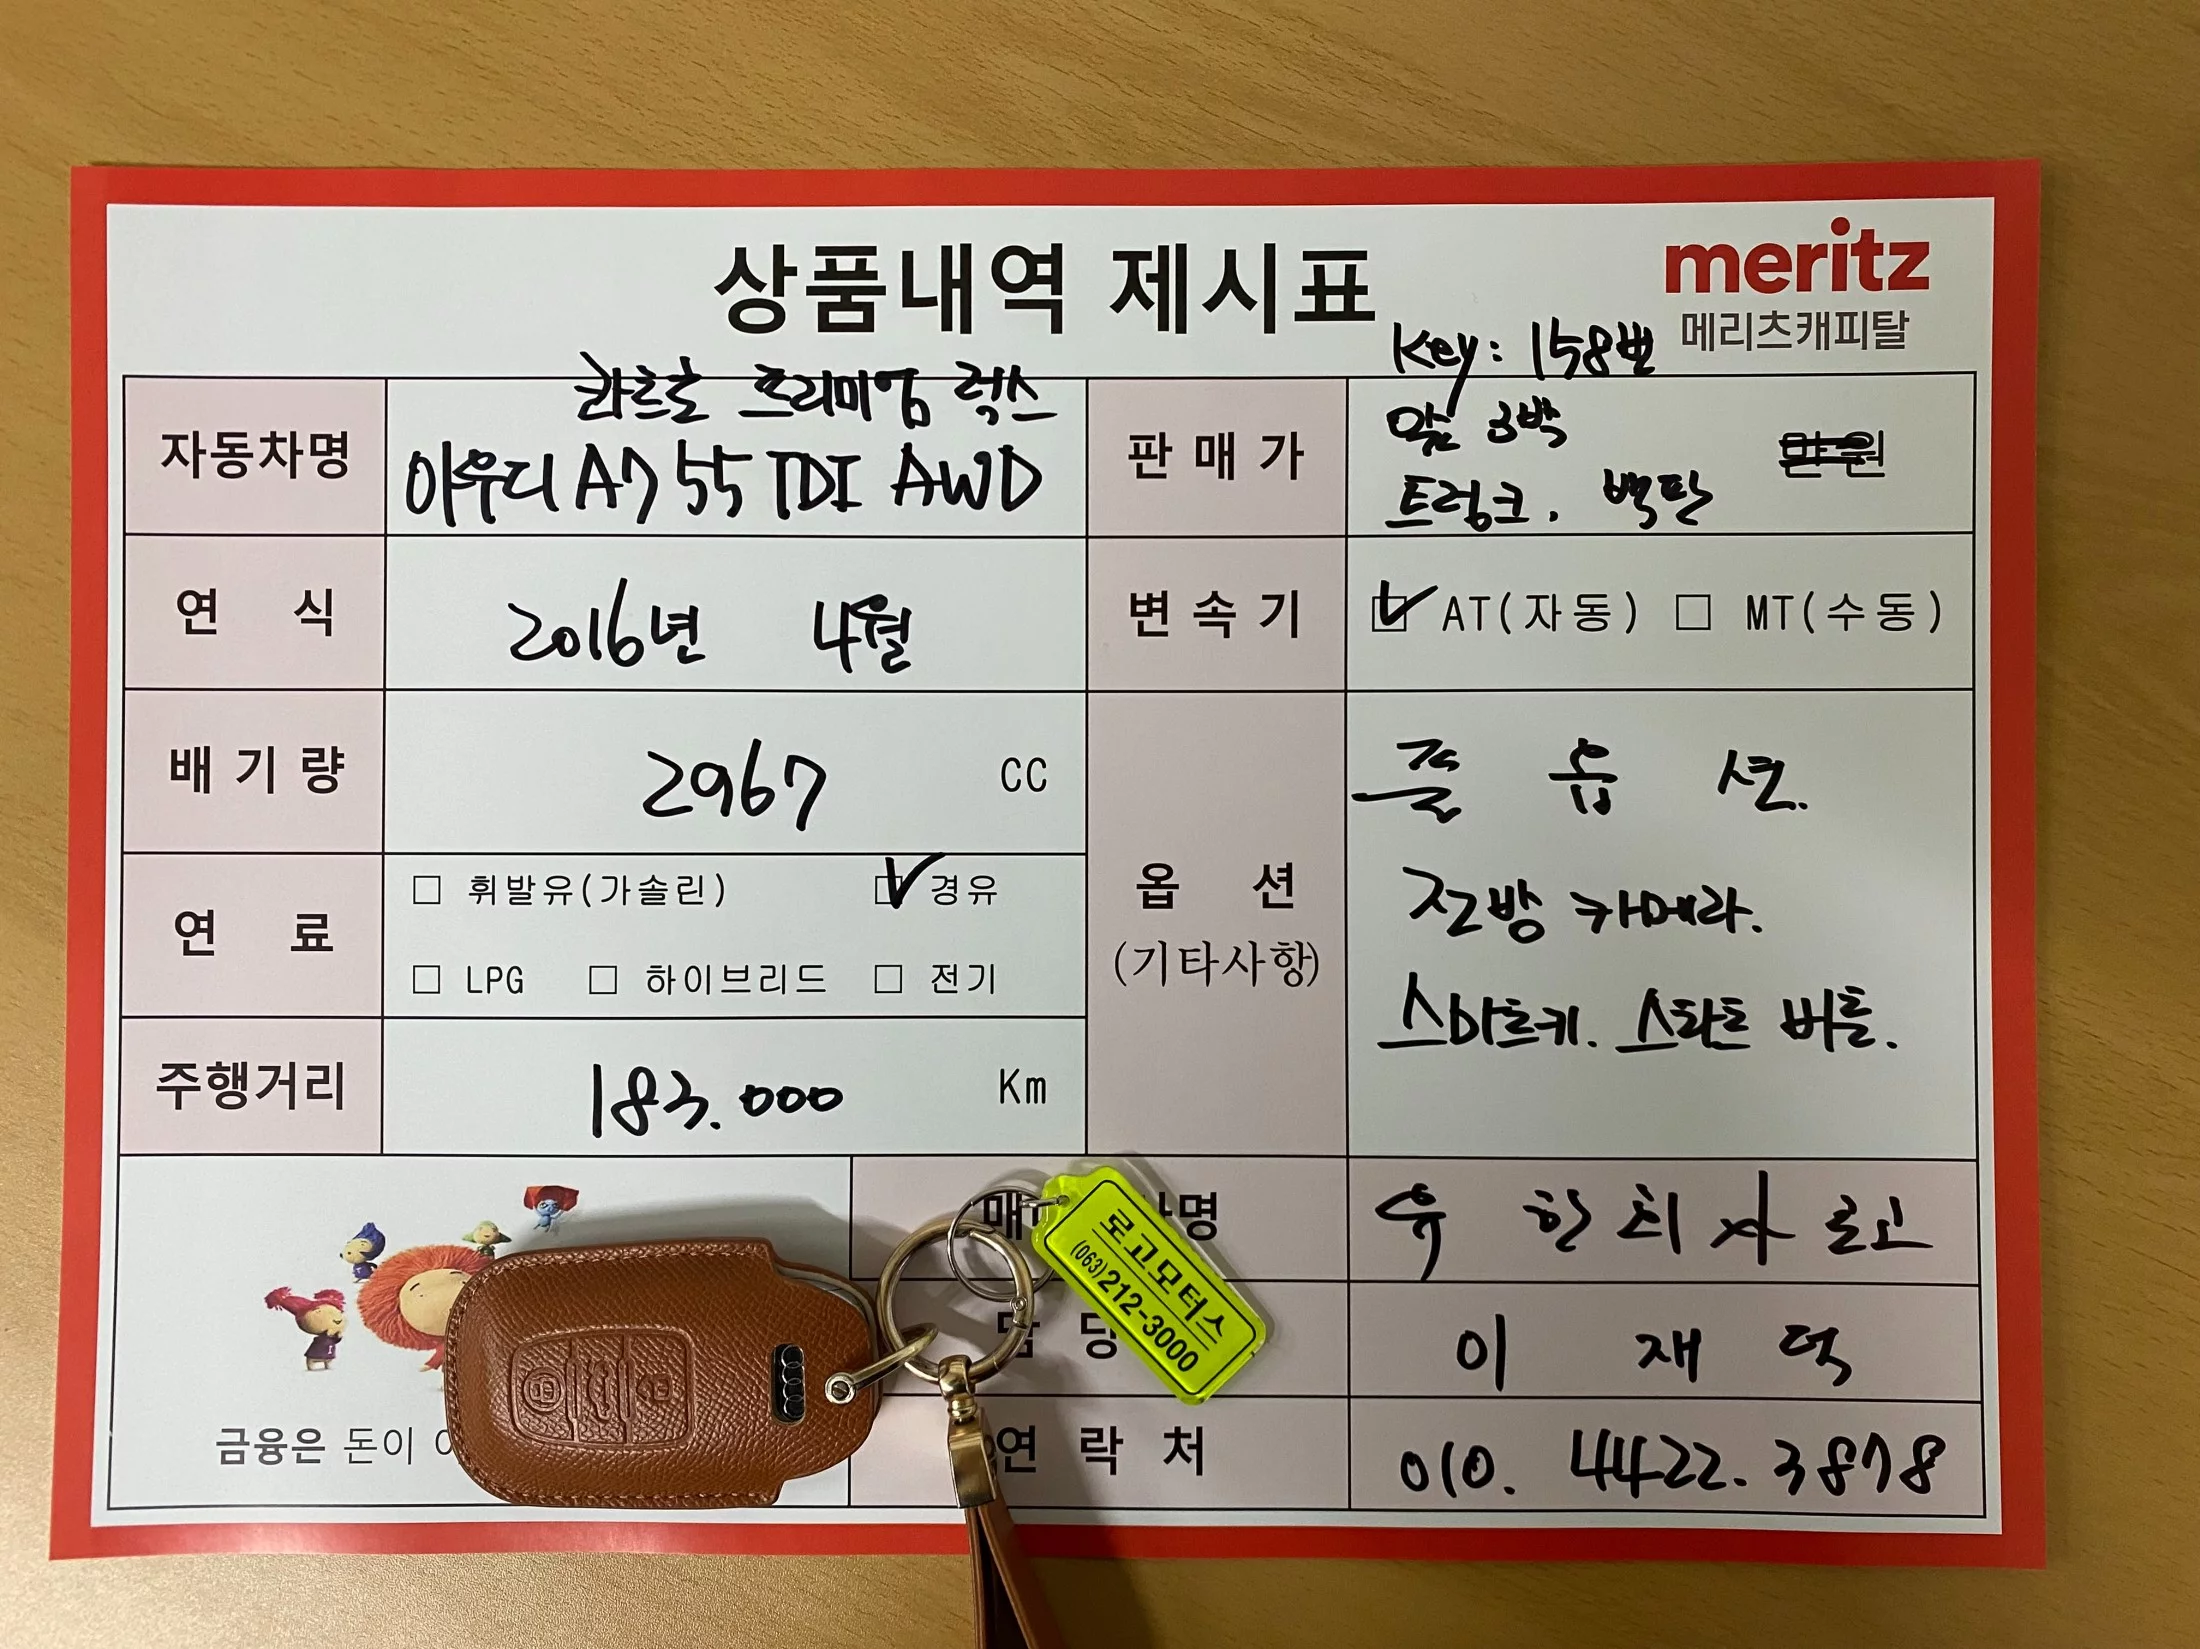 상품내역 제시표
meritz
메리츠캐피탈
Key: 158번
자동차명
콰트로 프리미엄 럭스
아우디 A7 55 TDI AWD
판매가
앞 3박
트렁크. 백판
만원
연 식
2016년 4월
변속기
AT(자동) MT(수동)
배기량
2967 CC
옵 션
(기타사항)
풀 옵 션.
전방 카메라.
스마트키. 스타트 버튼.
연 료
휘발유(가솔린) 경유
LPG 하이브리드 전기
주행거리
183.000 Km
매 명
유한회사 로고
로고모터스
(063)212-3000
담 당
이 재 덕
금융은 돈이
연 락 처
010. 4422. 3878